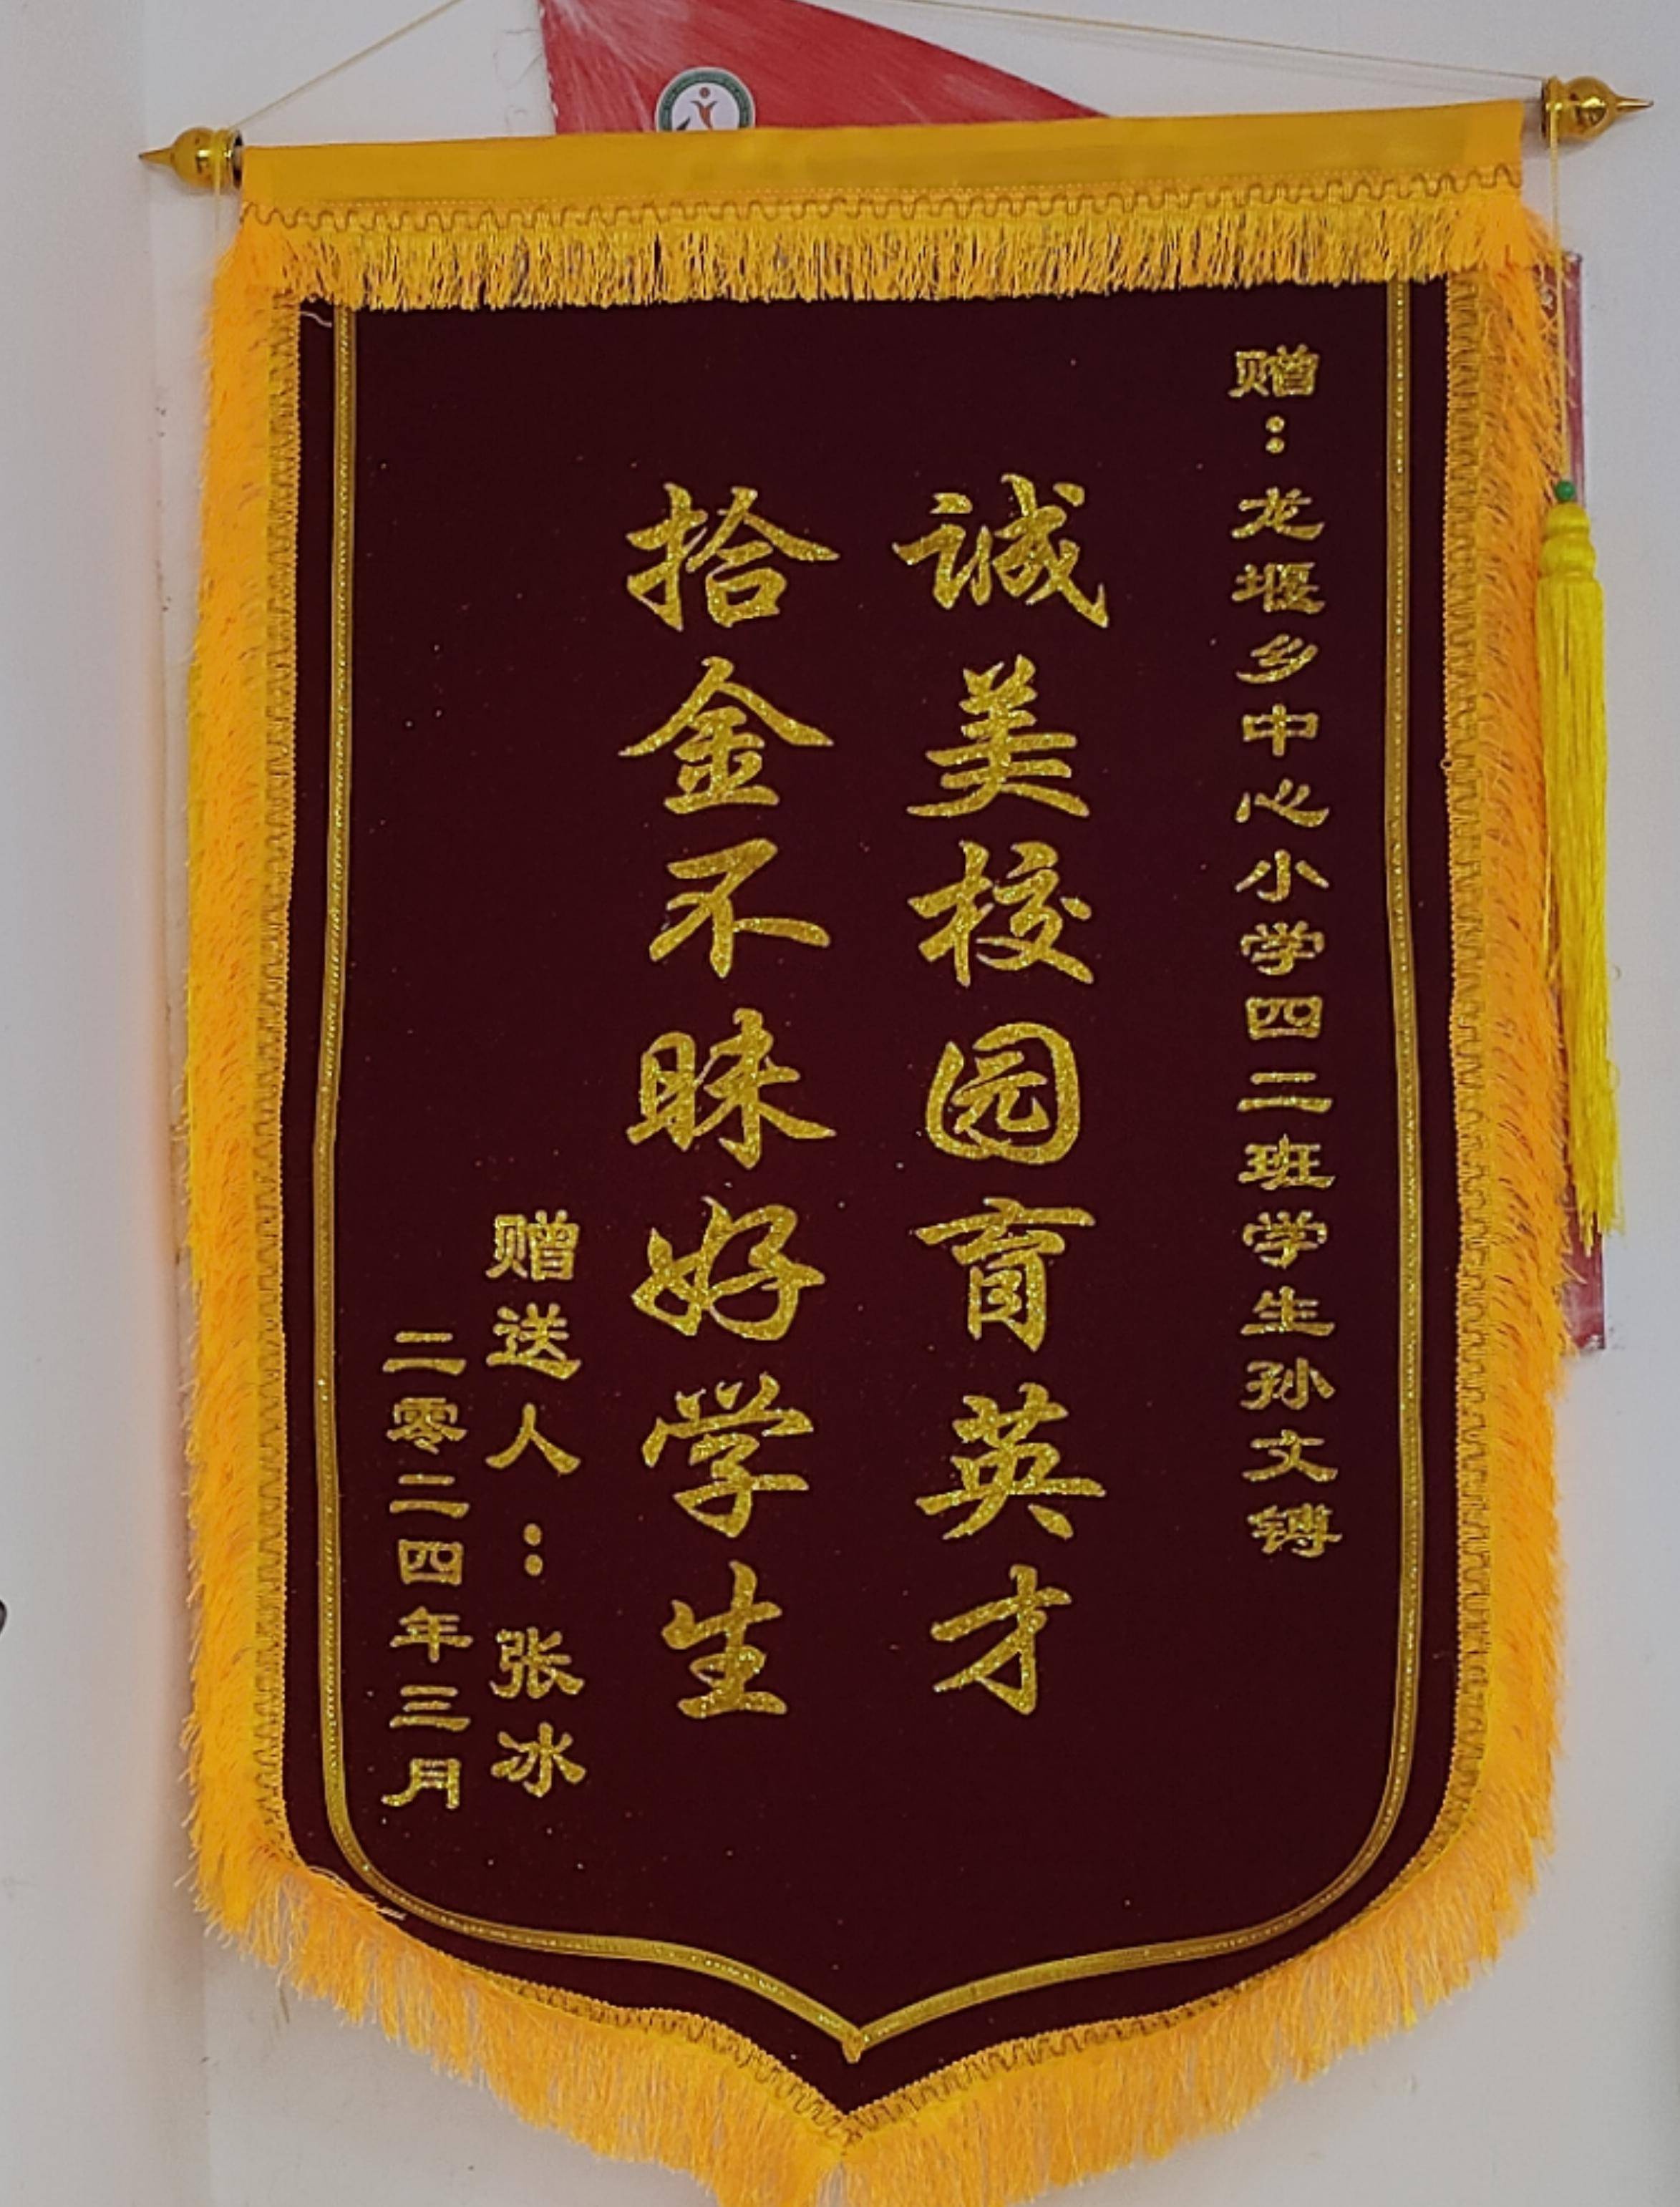 赠：龙堰乡中心小学四二班学生孙文镈
诚美校园育英才
拾金不昧好学生
赠送人：张冰
二零二四年三月